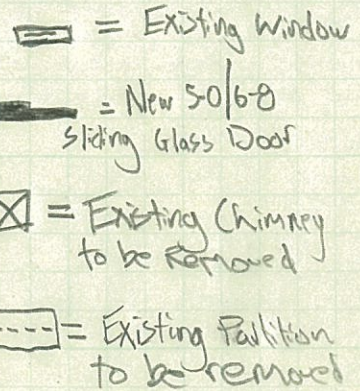 = Existing Window
= New 5-0|6-8
Sliding Glass Door
= Existing Chimney
to be Removed
= Existing Partition
to be removed